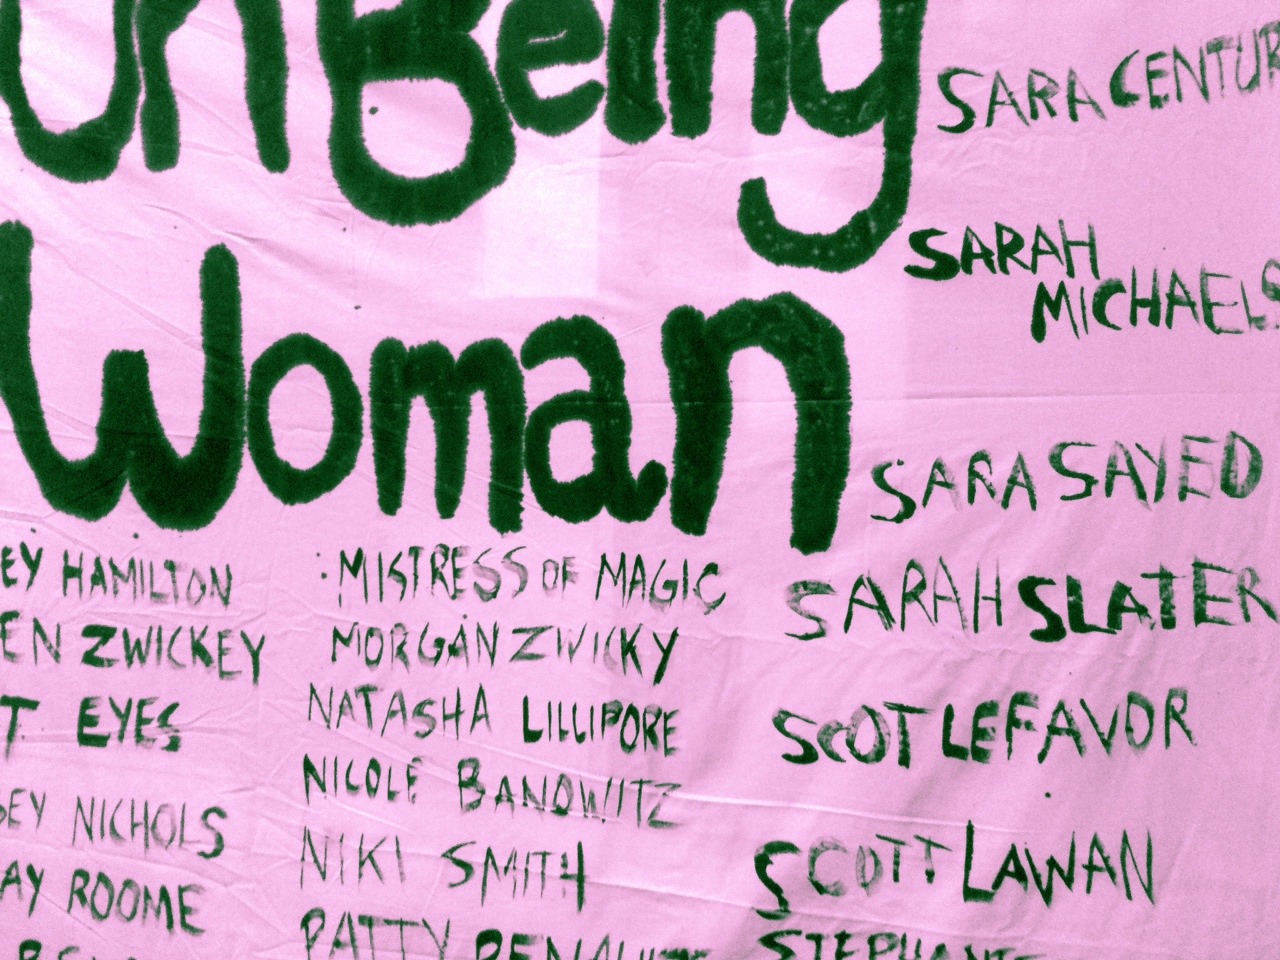 On Being
Woman
HAMILTON
ZWICKEY
EYES
NICHOLS
ROOME
MISTRESS OF MAGIC
MORGAN ZWICKY
NATASHA LILLIPORE
NICOLE BANOWITZ
NIKI SMITH
PATTY
SARA
SARAH
MICHAELS
SARA SAYED
SARAH SLATER
SCOT LEFAVOR
SCOTT LAWAN